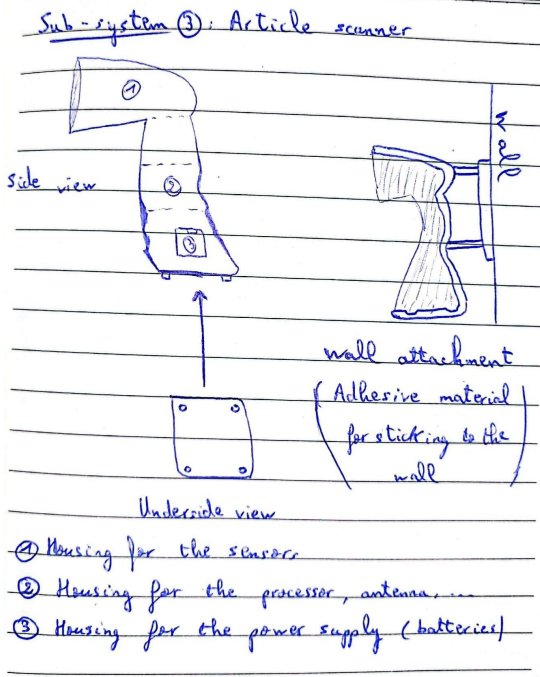 Sub-system ③: Article scanner
①
side view
②
③
wall
wall attachment
(Adhesive material
for sticking to the
wall)
Underside view
① Housing for the sensors
② Housing for the processor, antenna, ...
③ Housing for the power supply (batteries)